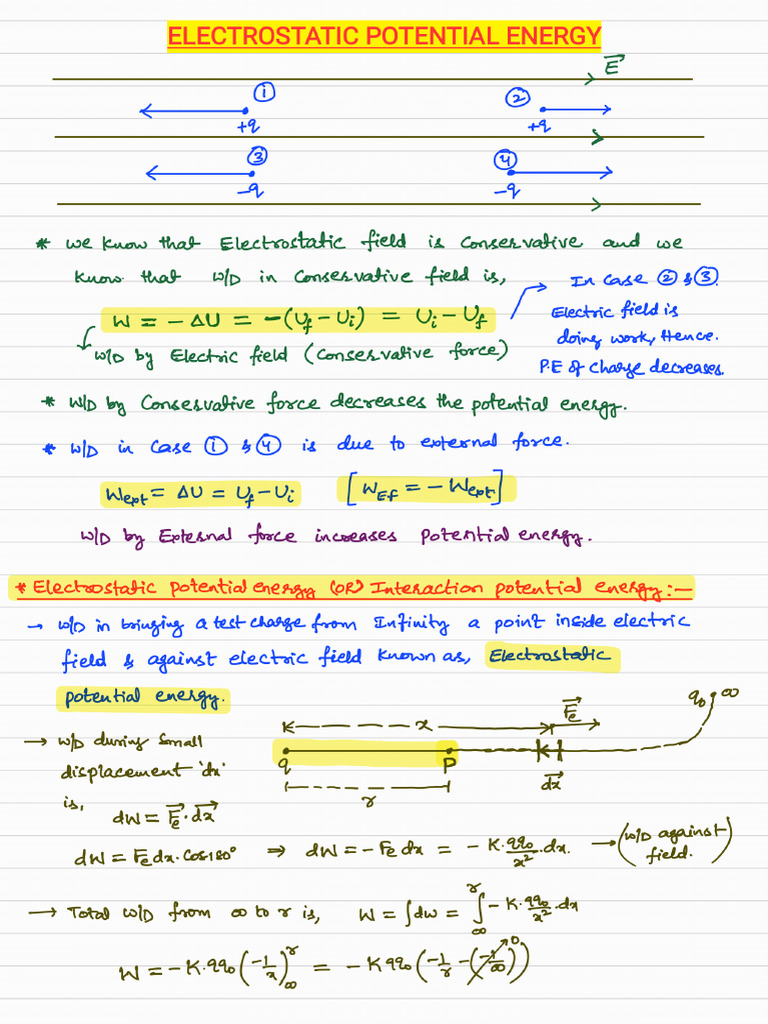 ELECTROSTATIC POTENTIAL ENERGY
E⃗
① ②
+q +q
③ ④
-q -q
* we know that Electrostatic field is conservative and we
know that W/D in conservative field is,
In case ② & ③.
W = -ΔU = -(Uf - Ui) = Ui - Uf
Electric field is
doing work, Hence.
W/D by Electric field (Conservative force)
P.E of charge decreases.
* W/D by Conservative force decreases the potential energy.
* W/D in case ① & ④ is due to external force.
Wext = ΔU = Uf - Ui [WEf = -Wext]
W/D by External force increases potential energy.
* Electrostatic potential energy (OR) Interaction potential energy:-
→ W/D in bringing a test charge from Infinity a point inside electric
field & against electric field known as, Electrostatic
potential energy.
q₀ ∞
x F⃗e
→ W/D during small
displacement 'dx'
q P
dx⃗
r
is,
dW = F⃗e · dx⃗
dW = Fe dx · Cos180° ⇒ dW = -Fe dx = -K·qq₀/x² · dx. → (W/D against field.)
→ Total W/D from ∞ to r is, W = ∫dw = ∫∞^r -K·qq₀/x² · dx
W = -K·qq₀ (-1/x)∞^r = -Kqq₀ (-1/r - (-1/∞)) 0